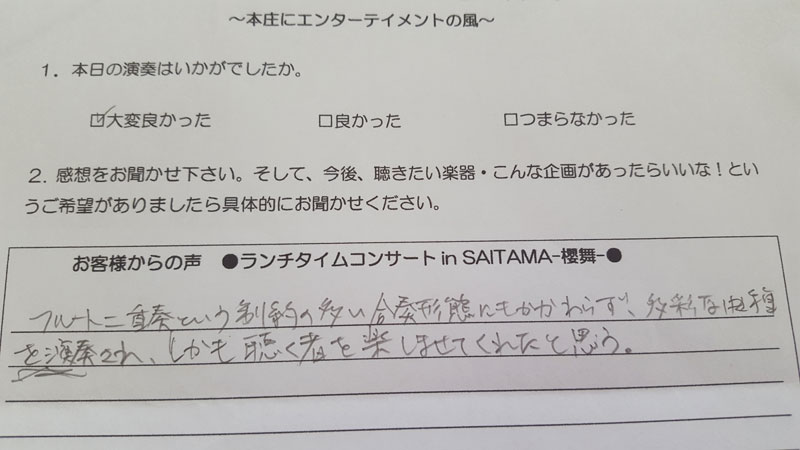 ～本庄にエンターテイメントの風～
1．本日の演奏はいかがでしたか。
☑大変良かった □良かった □つまらなかった
2．感想をお聞かせ下さい。そして、今後、聴きたい楽器・こんな企画があったらいいな！とい
うご希望がありましたら具体的にお聞かせください。
お客様からの声 ●ランチタイムコンサート in SAITAMA-櫻舞-●
フルート二重奏という制約の多い合奏形態にもかかわらず、多彩な曲種
を演奏され、しかも聴く者を楽しませてくれたと思う。